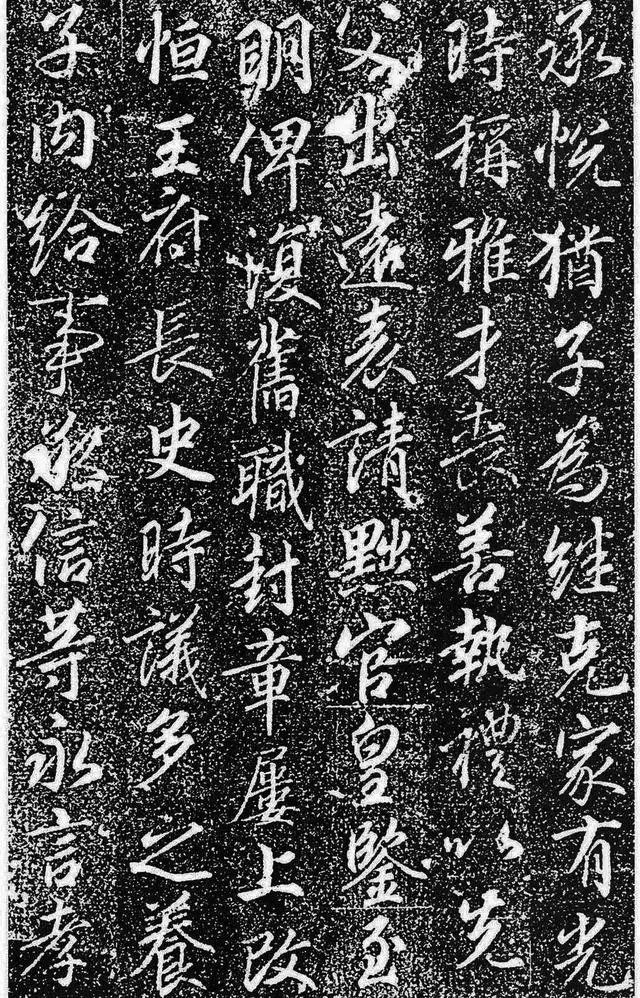 承悅猶子爲継克家有光
時稱雅才喪善執禮以先
父出遠表請黜官皇鑒至
明俾復舊職封章屢上改
恒王府長史時議多之養
子內給事承信等永言孝